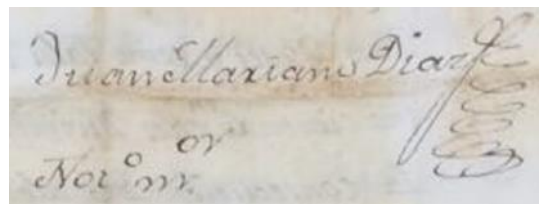 Juan Mariano Diaz
Nor.º m.or